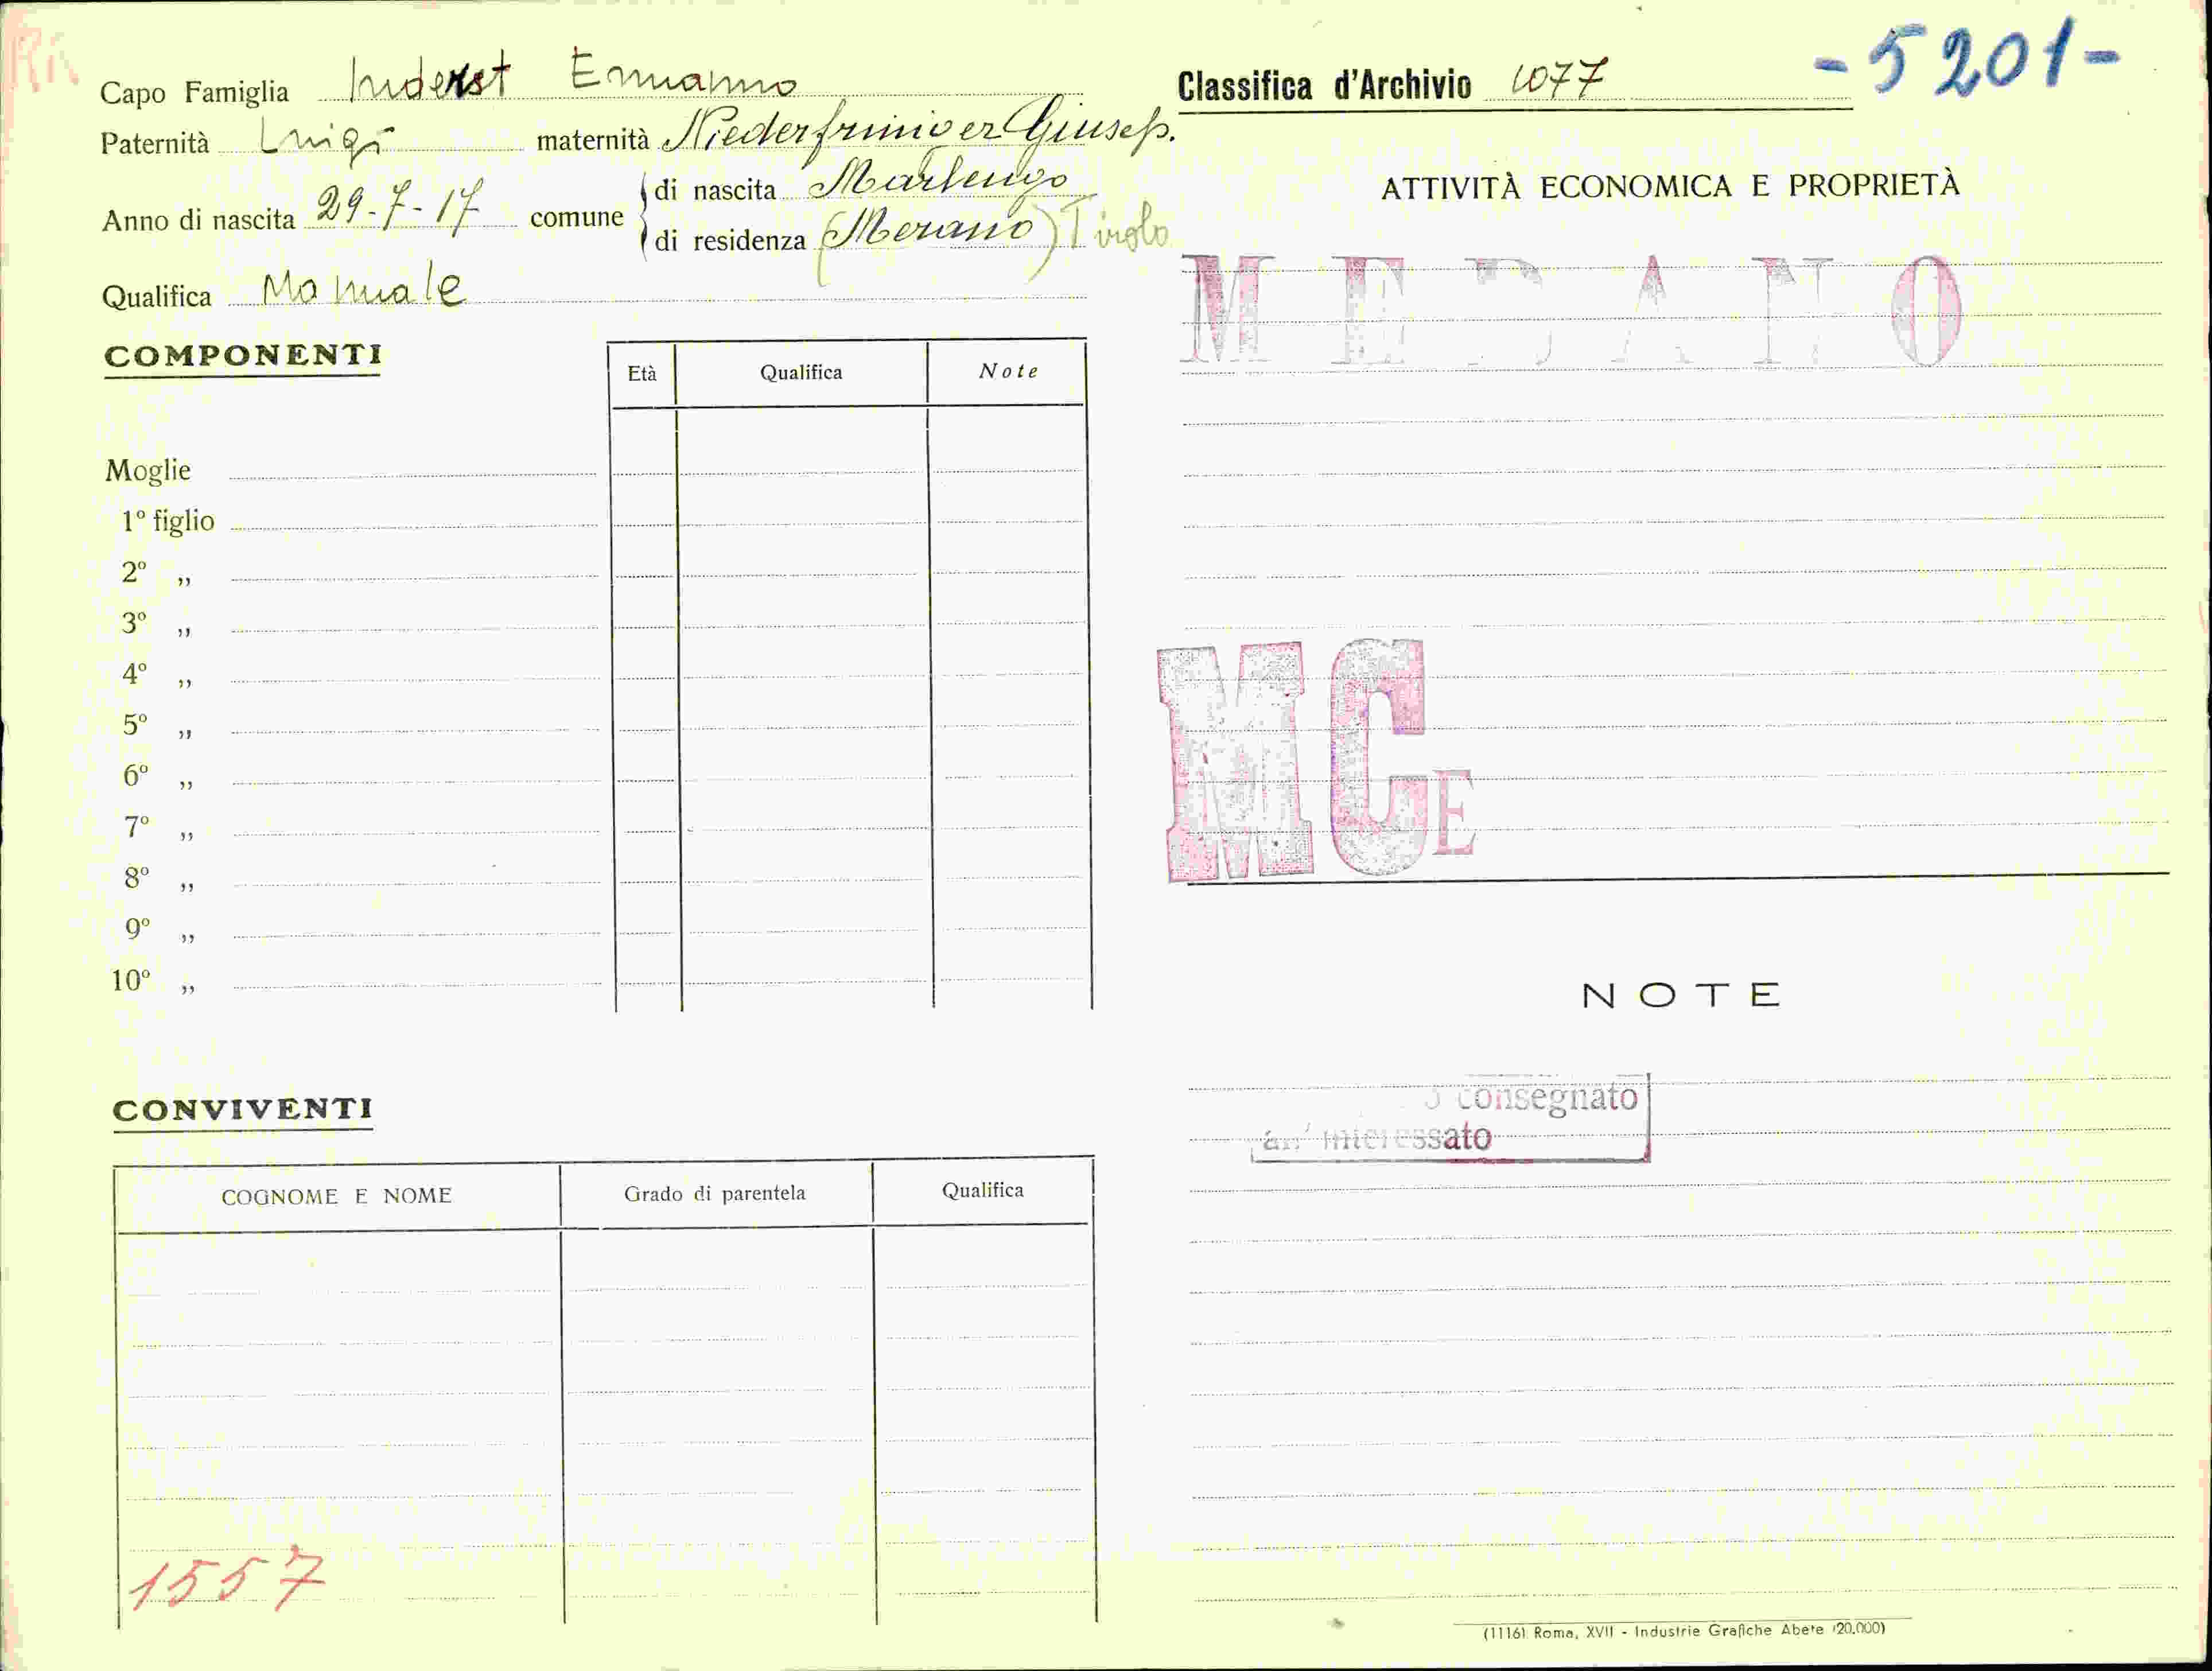 Capo Famiglia Inderst Ermanno
Paternità Luigi maternità Niederfriniger Giusep.
Anno di nascita 29-7-17 comune
di nascita Marlengo
di residenza (Merano) Tirolo
Qualifica Manuale
COMPONENTI
Età Qualifica Note
Moglie
1º figlio
2º „
3º „
4º „
5º „
6º „
7º „
8º „
9º „
10º „
CONVIVENTI
COGNOME E NOME Grado di parentela Qualifica
1557
Classifica d'Archivio 1077 -5201-
ATTIVITÀ ECONOMICA E PROPRIETÀ
MERANO
MCE
NOTE
consegnato
all'interessato
(1116) Roma, XVII - Industrie Grafiche Abete (20.000)